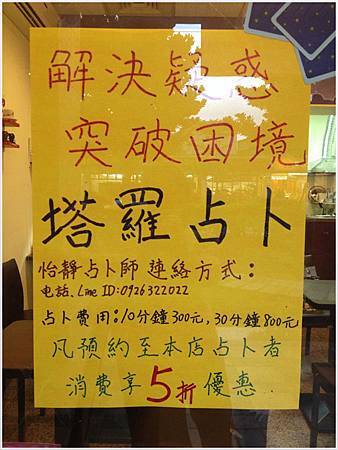 解決疑惑
突破困境
塔羅占卜
怡靜占卜師 連絡方式：
电話、Line ID:0926322022
占卜費用：10分鐘300元，30分鐘800元
凡預約至本店占卜者
消費享5折優惠